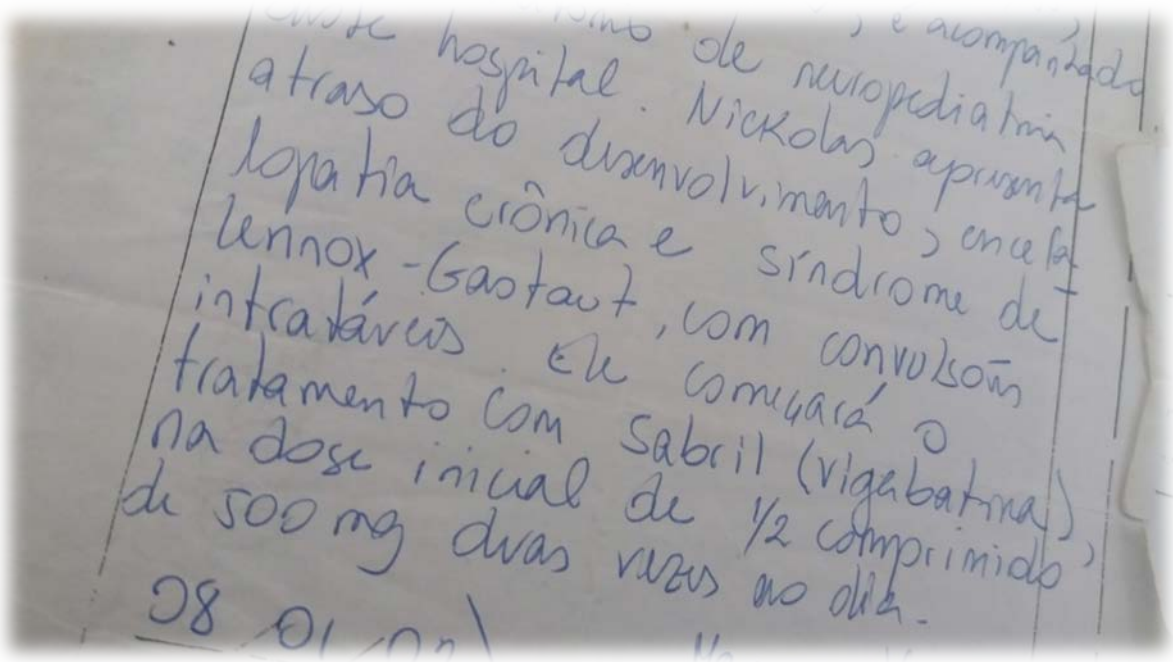 de neuropediatria, é acompanhado
hospital. Nickolas apresenta
atraso do desenvolvimento, encefa-
lopatia crônica e síndrome de
Lennox-Gastaut, com convulsões
intratáveis. Ele começará o
tratamento com Sabril (vigabatrina),
na dose inicial de 1/2 comprimido,
de 500 mg duas vezes ao dia.
08 01